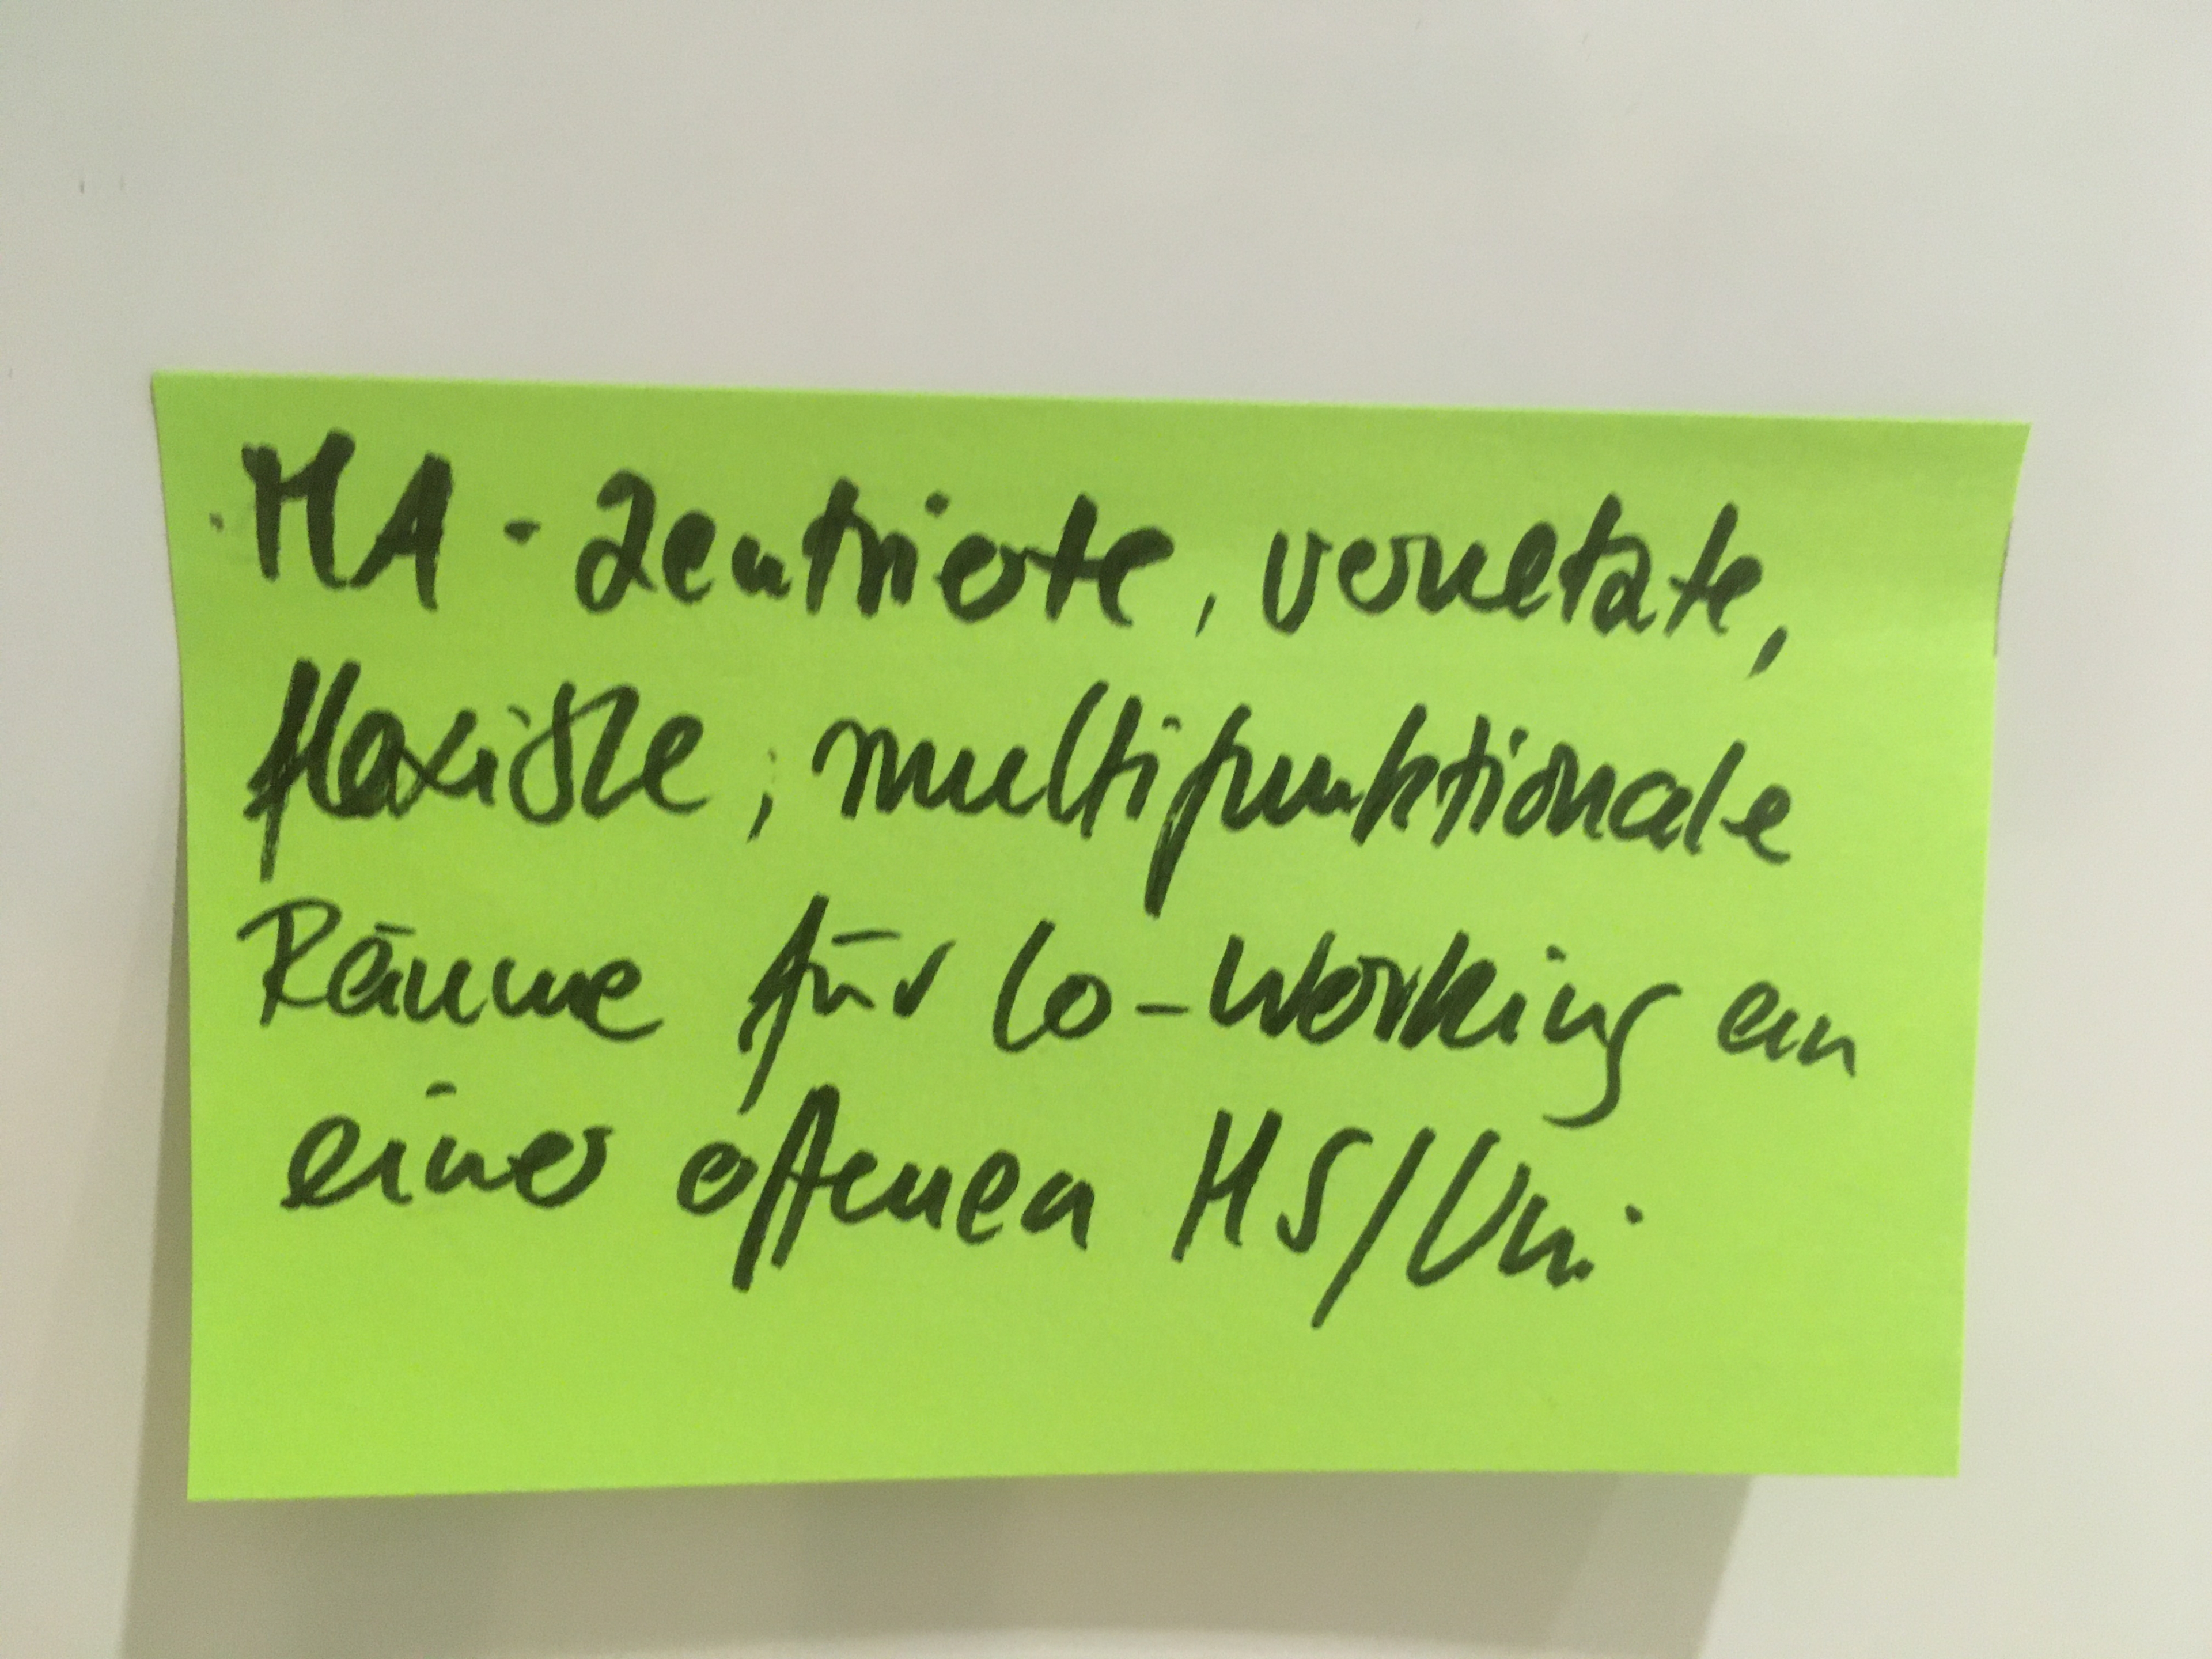 MA-zentrierte, vernetzte,
flexible, multifunktionale
Räume für Co-Working an
einer offenen HS/Uni